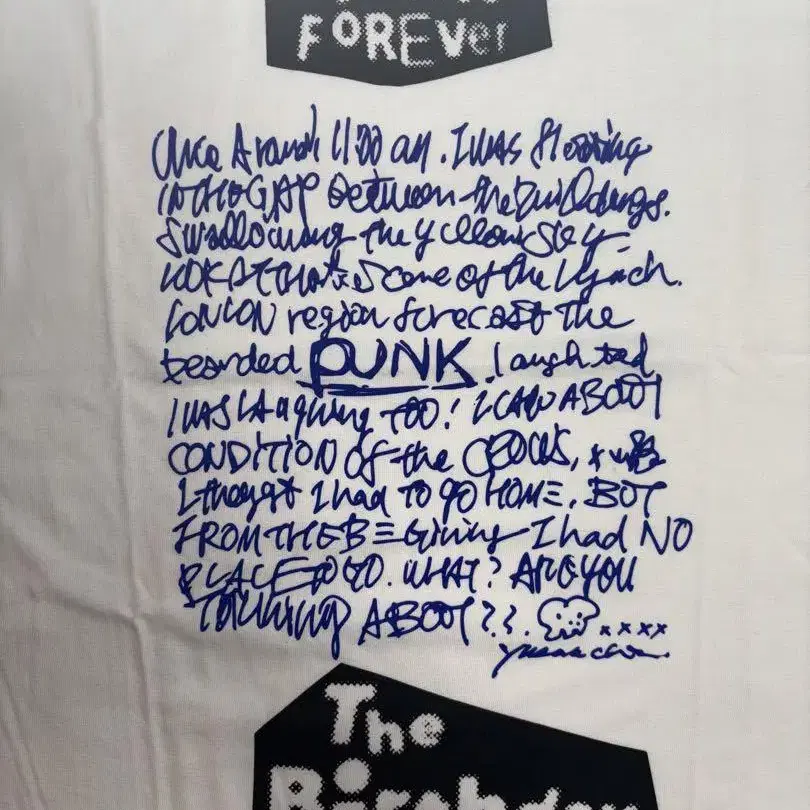 FOREVEr
A roundl 1100 am. I WAS floating
IN THE GAP between the buildings.
Swallowing the yellow sky
of the Lynch.
LONLON region forecast the
bearded PUNK. laughted
I WAS LAughing TOO! I CAN ABOUT
CONDITION Of the CROWS,
I thougt I had TO go HOME, BUT
FROM THE BEGining I had NO
PLACE TO GO. WHAT? ARE YOU
TALKING ABOUT??. xxxx
The
Birthday